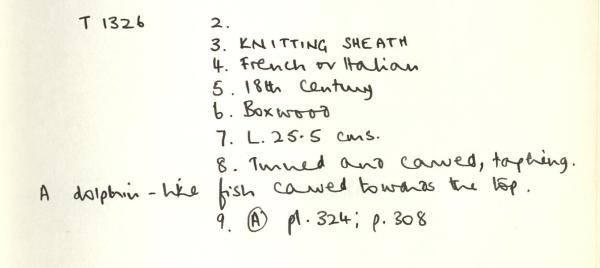 T 1326 2.
3. KNITTING SHEATH
4. French or Italian
5. 18th Century
6. Boxwood
7. L. 25.5 cms.
8. Turned and carved, tapering.
A dolphin-like fish carved towards the top.
9. Ⓐ pl. 324; p. 308